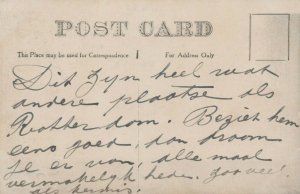 POST CARD
This Place may be used for Correspondence
For Address Only
Dit zyn heel wat
andere plaatse als
Rotterdam. Beziet hem
eens goed, dan droom
je er van, alle maal
vermakelykheden. zooveel
als kermis.